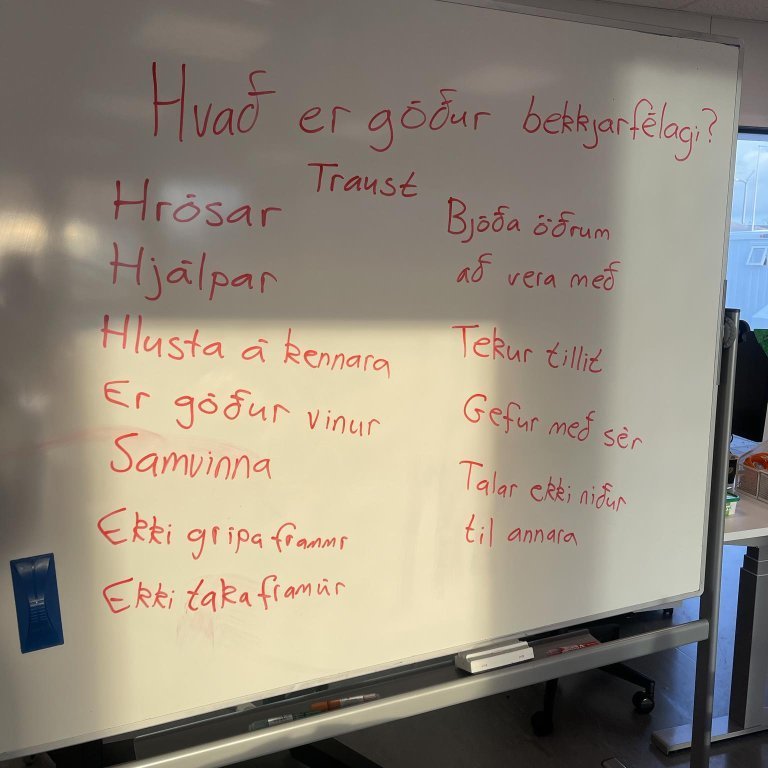 Hvað er góður bekkjarfélagi?
Traust
Hrósar
Hjálpar
Hlusta á kennara
Er góður vinur
Samvinna
Ekki gripa frammí
Ekki taka framúr
Bjóða öðrum
að vera með
Tekur tillit
Gefur með sér
Talar ekki niður
til annara